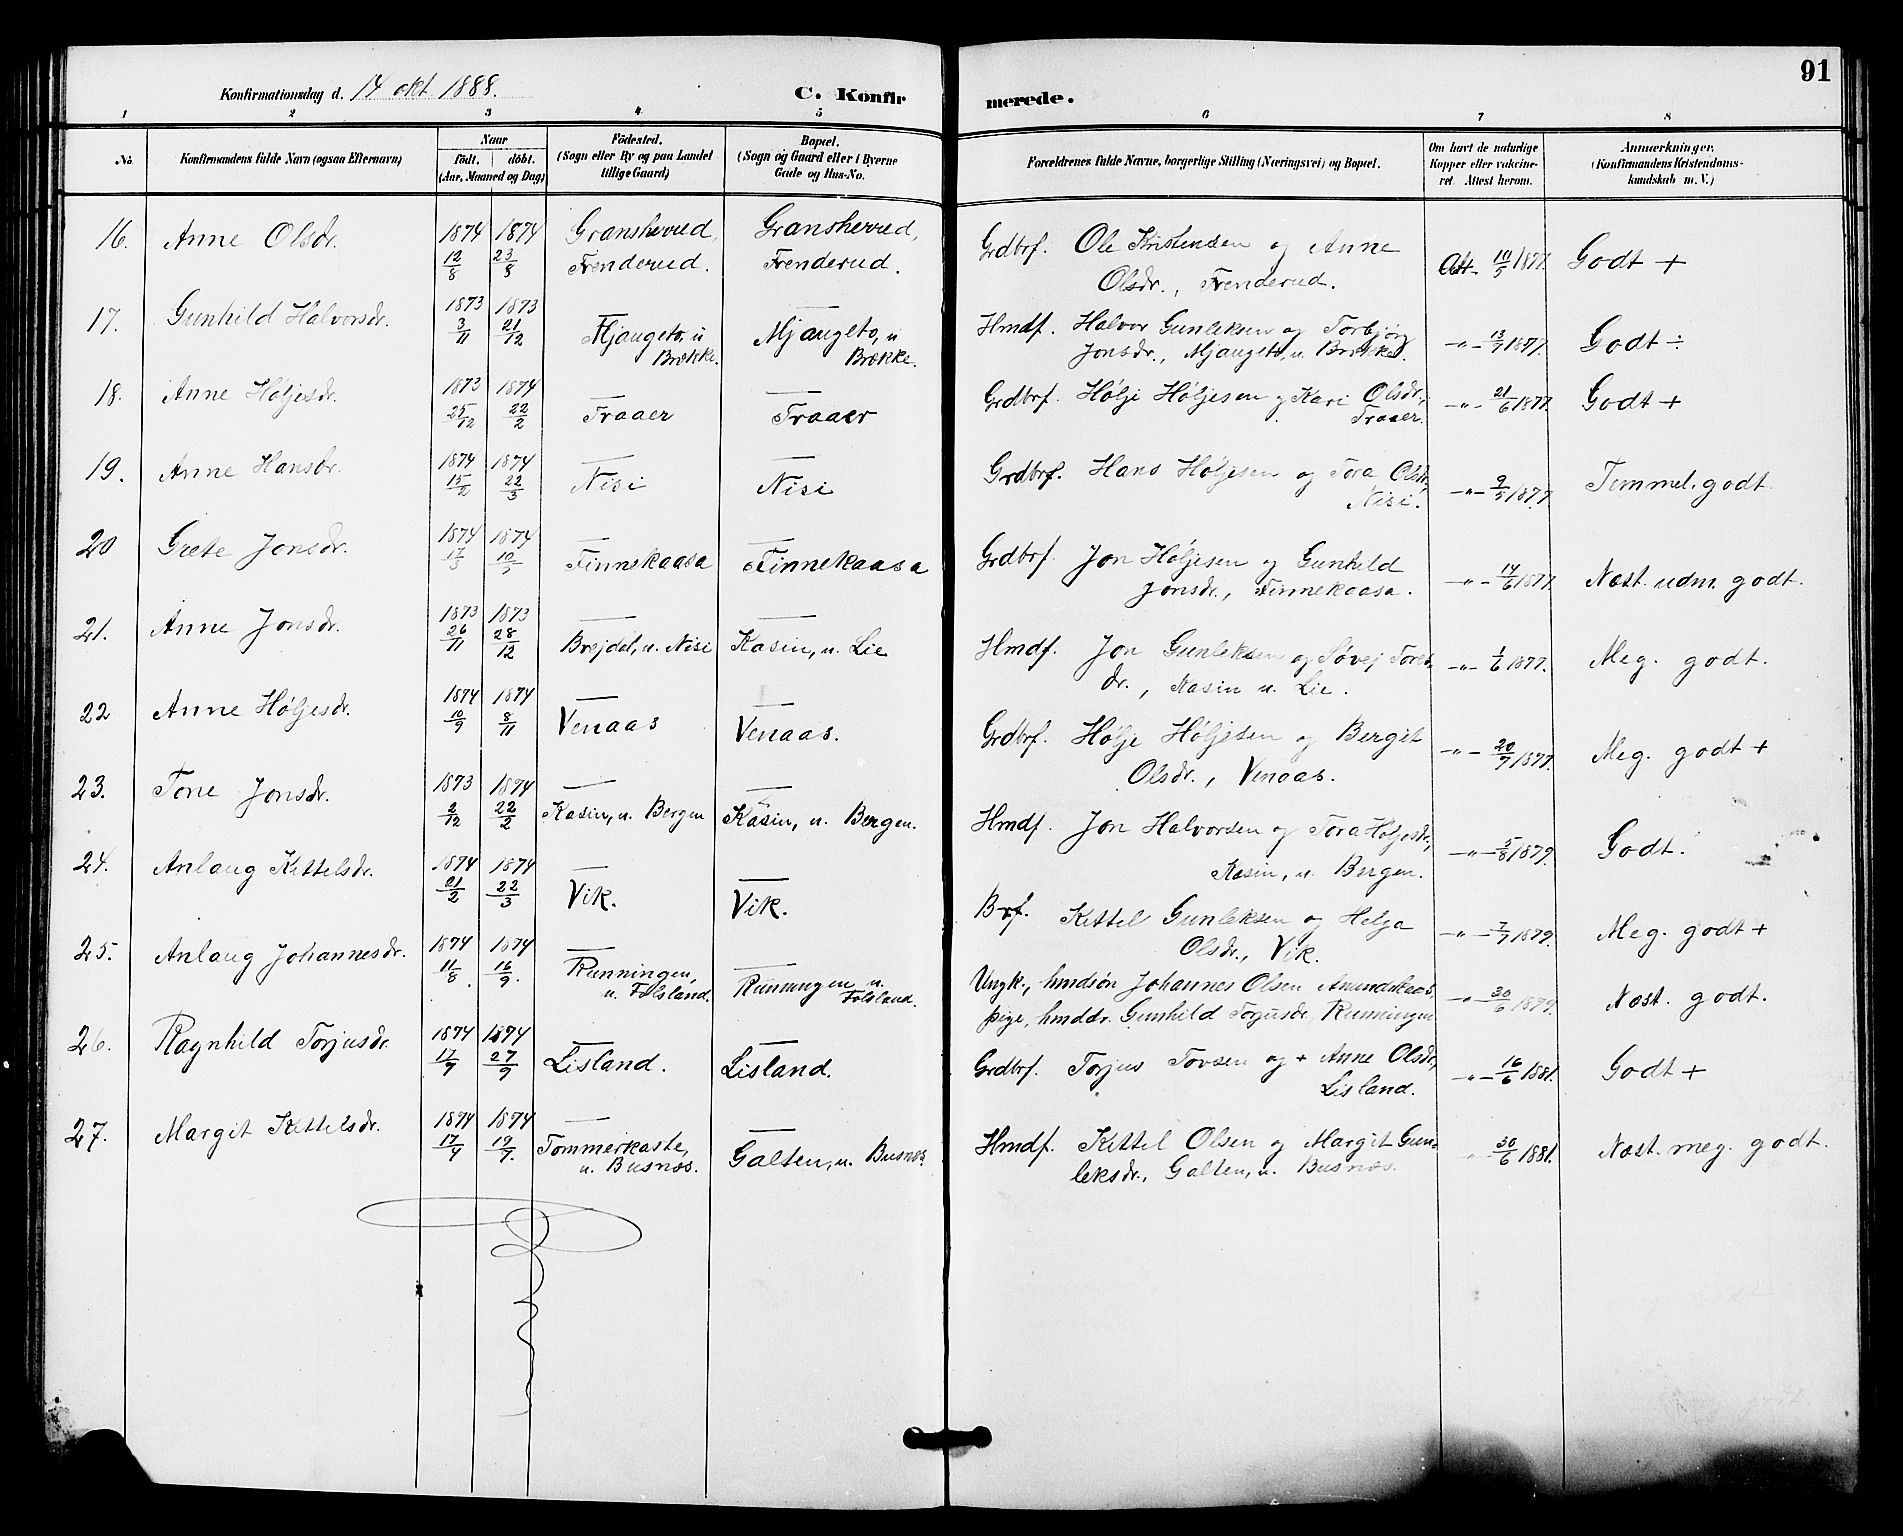 91
Konfirmationsdag d. 14 okt 1888.
C. Konfirmerede.
1 2 3 4 5 6 7 8
No. Konfirmandens fulde Navn (ogsaa Efternavn) Naar födt. döbt. (Aar, Maaned og Dag) Födested. (Sogn eller By og paa Landet tillige Gaard) Bopæl. (Sogn og Gaard eller i Byerne Gade og Hus-No. Forældrenes fulde Navne, borgerlige Stilling (Næringsvei) og Bopæl. Om havt de naturlige Kopper eller vakcineret. Attest herom. Anmærkninger. (Konfirmandens Kristendomskundskab m. V.)
16. Anne Olsdr. 1874 12/8 1874 23/8 Gransherred, Frenderud. Gransherred, Frenderud. Grdbrf. Ole Kristensen og Anne
Olsdr., Frenderud. Att. 10/5 1877. Godt +
17. Gunhild Halvorsdr. 1873 3/11 1873 21/12 — Mjaugeto, u Brække. — Mjaugeto, u Brække. Hmdf. Halvor Gunleksen og Torbjör
Jonsdr., Mjaugeto, u. Brække. -"- 13/7 1877. Godt ÷
18. Anne Høljesdr. 1873 25/12 1874 22/2 — Traaer — Traaer Grdbrf. Hølje Høljesen og Kari Olsdr,
Traaer. -"- 21/6 1877. Godt +
19. Anne Hansdr. 1874 15/2 1874 22/3 — Nisi — Nisi Grdbrf. Hans Høljesen og Tora Olsdr,
Nisi. -"- 9/5 1877. Temmel. godt.
20 Grete Jonsdr. 1874 17/3 1874 10/5 — Finnekaasa — Finnekaasa Grdbrf. Jon Høljesen og Gunhild
Jonsdr., Finnekaasa. -"- 14/6 1877. Næst. udm. godt.
21. Anne Jonsdr. 1873 26/11 1873 28/12 — Brejdal, u. Nisi — Kasin, u. Lie Hmdf. Jon Gunleksen og Søvej Tores-
dr., Kasin u. Lie. -"- 1/6 1877. Meg. godt.
22 Anne Høljesdr. 1874 10/9 1874 8/11 — Venaas — Venaas. Grdbrf. Hølje Høljesen og Bergit
Olsdr., Venaas. -"- 20/7 1877. Meg. godt +
23. Tone Jonsdr. 1873 2/12 1874 22/2 — Kasin, u. Bergen — Kasin, u. Bergen. Hmdf. Jon Halvorsen og Tora Høljesdr.,
Kasin, u. Bergen. -"- 5/8 1879. Godt.
24. Anlaug Kittelsdr. 1874 21/2 1874 22/3 — Vik. — Vik. Brf. Kittel Gunleksen og Helga
Olsdr., Vik. -"- 7/7 1879. Meg. godt +
25. Anlaug Johannesdr. 1874 11/8. 1874 16/9. — Runningen, u. Folsland. — Runningen u. Folsland. Ungk., hmdsön Johannes Olsen
pige, hmddr. Gunhild Torjusdr, Runningen -"- 30/6 1879. Næst. godt.
26. Ragnhild Torjusdr. 1874 17/9 1874 27/9 — Lisland. — Lisland. Grdbrf. Torjus Tovsen og + Anne Olsdr,
Lisland. -"- 16/6 1881. Godt +
27. Margit Kittelsdr. 1874 17/4 1874 19/7. — Tommerkaste, u. Busnæs. — Galten, u. Busnæs. Hmdf. Kittel Olsen og Margit Gun-
leksdr., Galten, u. Busnæs. " 30/6 1881. Næst. meg. godt.